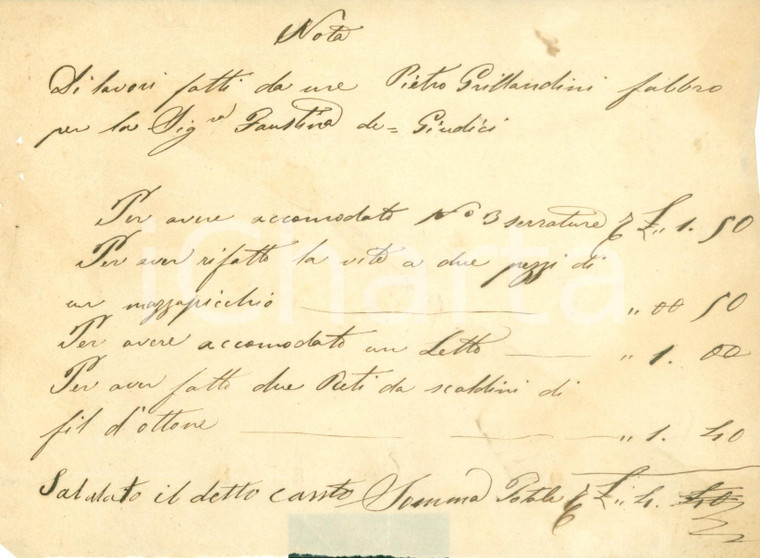 Nota
Di lavori fatti da me Pietro Grillandini fabbro
per la Sig.ra Faustina de= Giudici
Per avere accomodato No 3 serrature £,, 1. 50
Per aver rifatto la vite a due pezzi di
un mazzapicchio ,, 00 50
Per avere accomodato un Letto ,, 1. 00
Per aver fatto due da scaldini di
fil d'ottone ,, 1. 40
Saldato il detto Somma Totale £,, 4. 40
iCharta